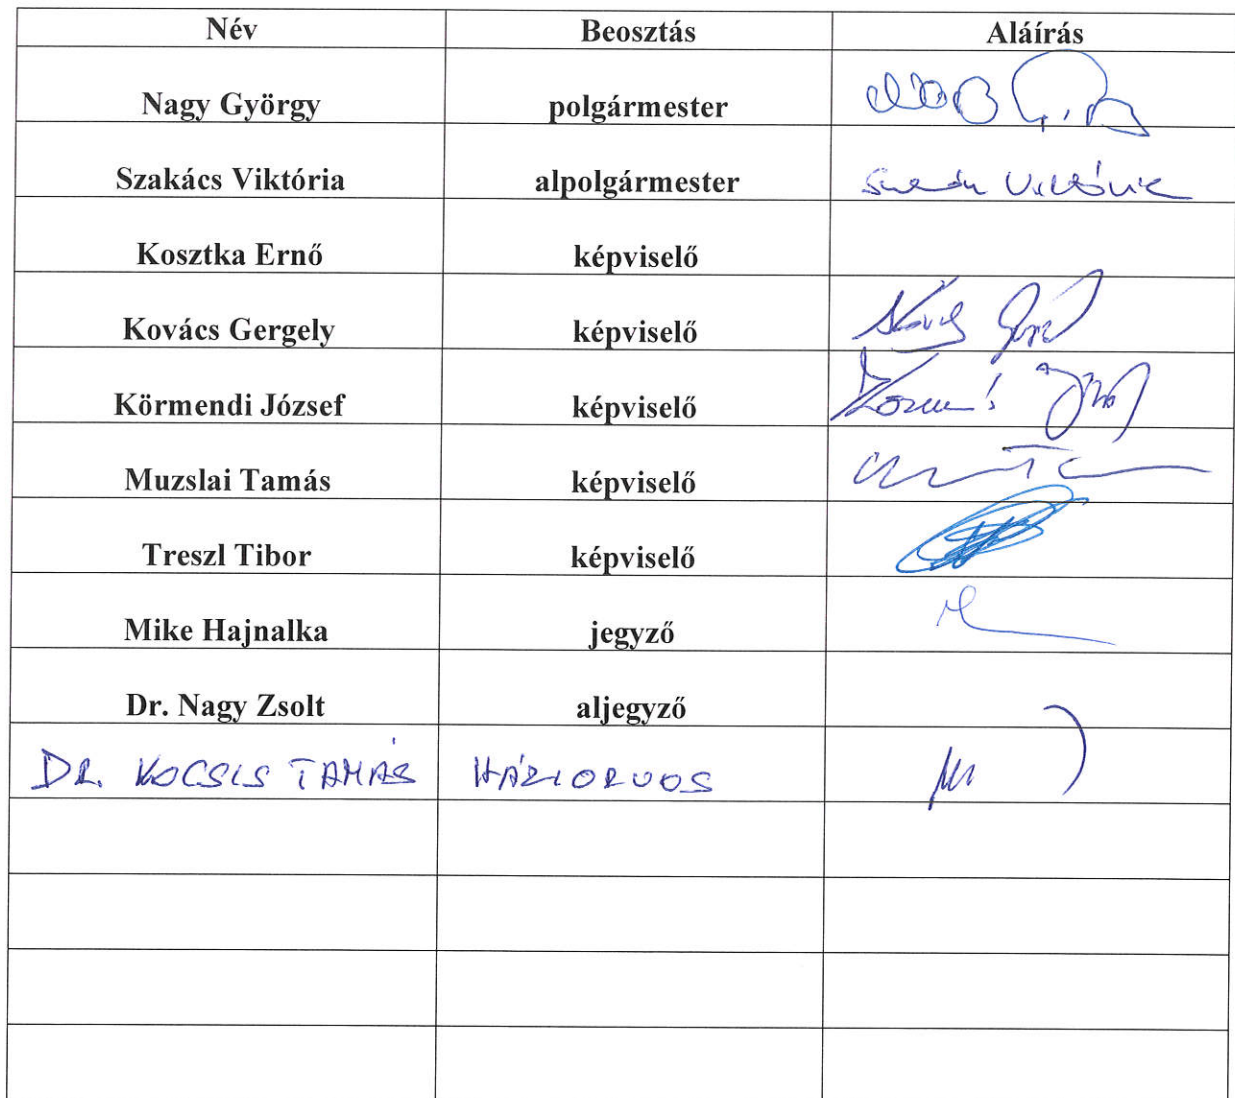 Név Beosztás Aláírás
Nagy György polgármester
Szakács Viktória alpolgármester
Kosztka Ernő képviselő
Kovács Gergely képviselő
Körmendi József képviselő
Muzslai Tamás képviselő
Treszl Tibor képviselő
Mike Hajnalka jegyző
Dr. Nagy Zsolt aljegyző
DR. KOCSIS TAMÁS HÁZIORVOS